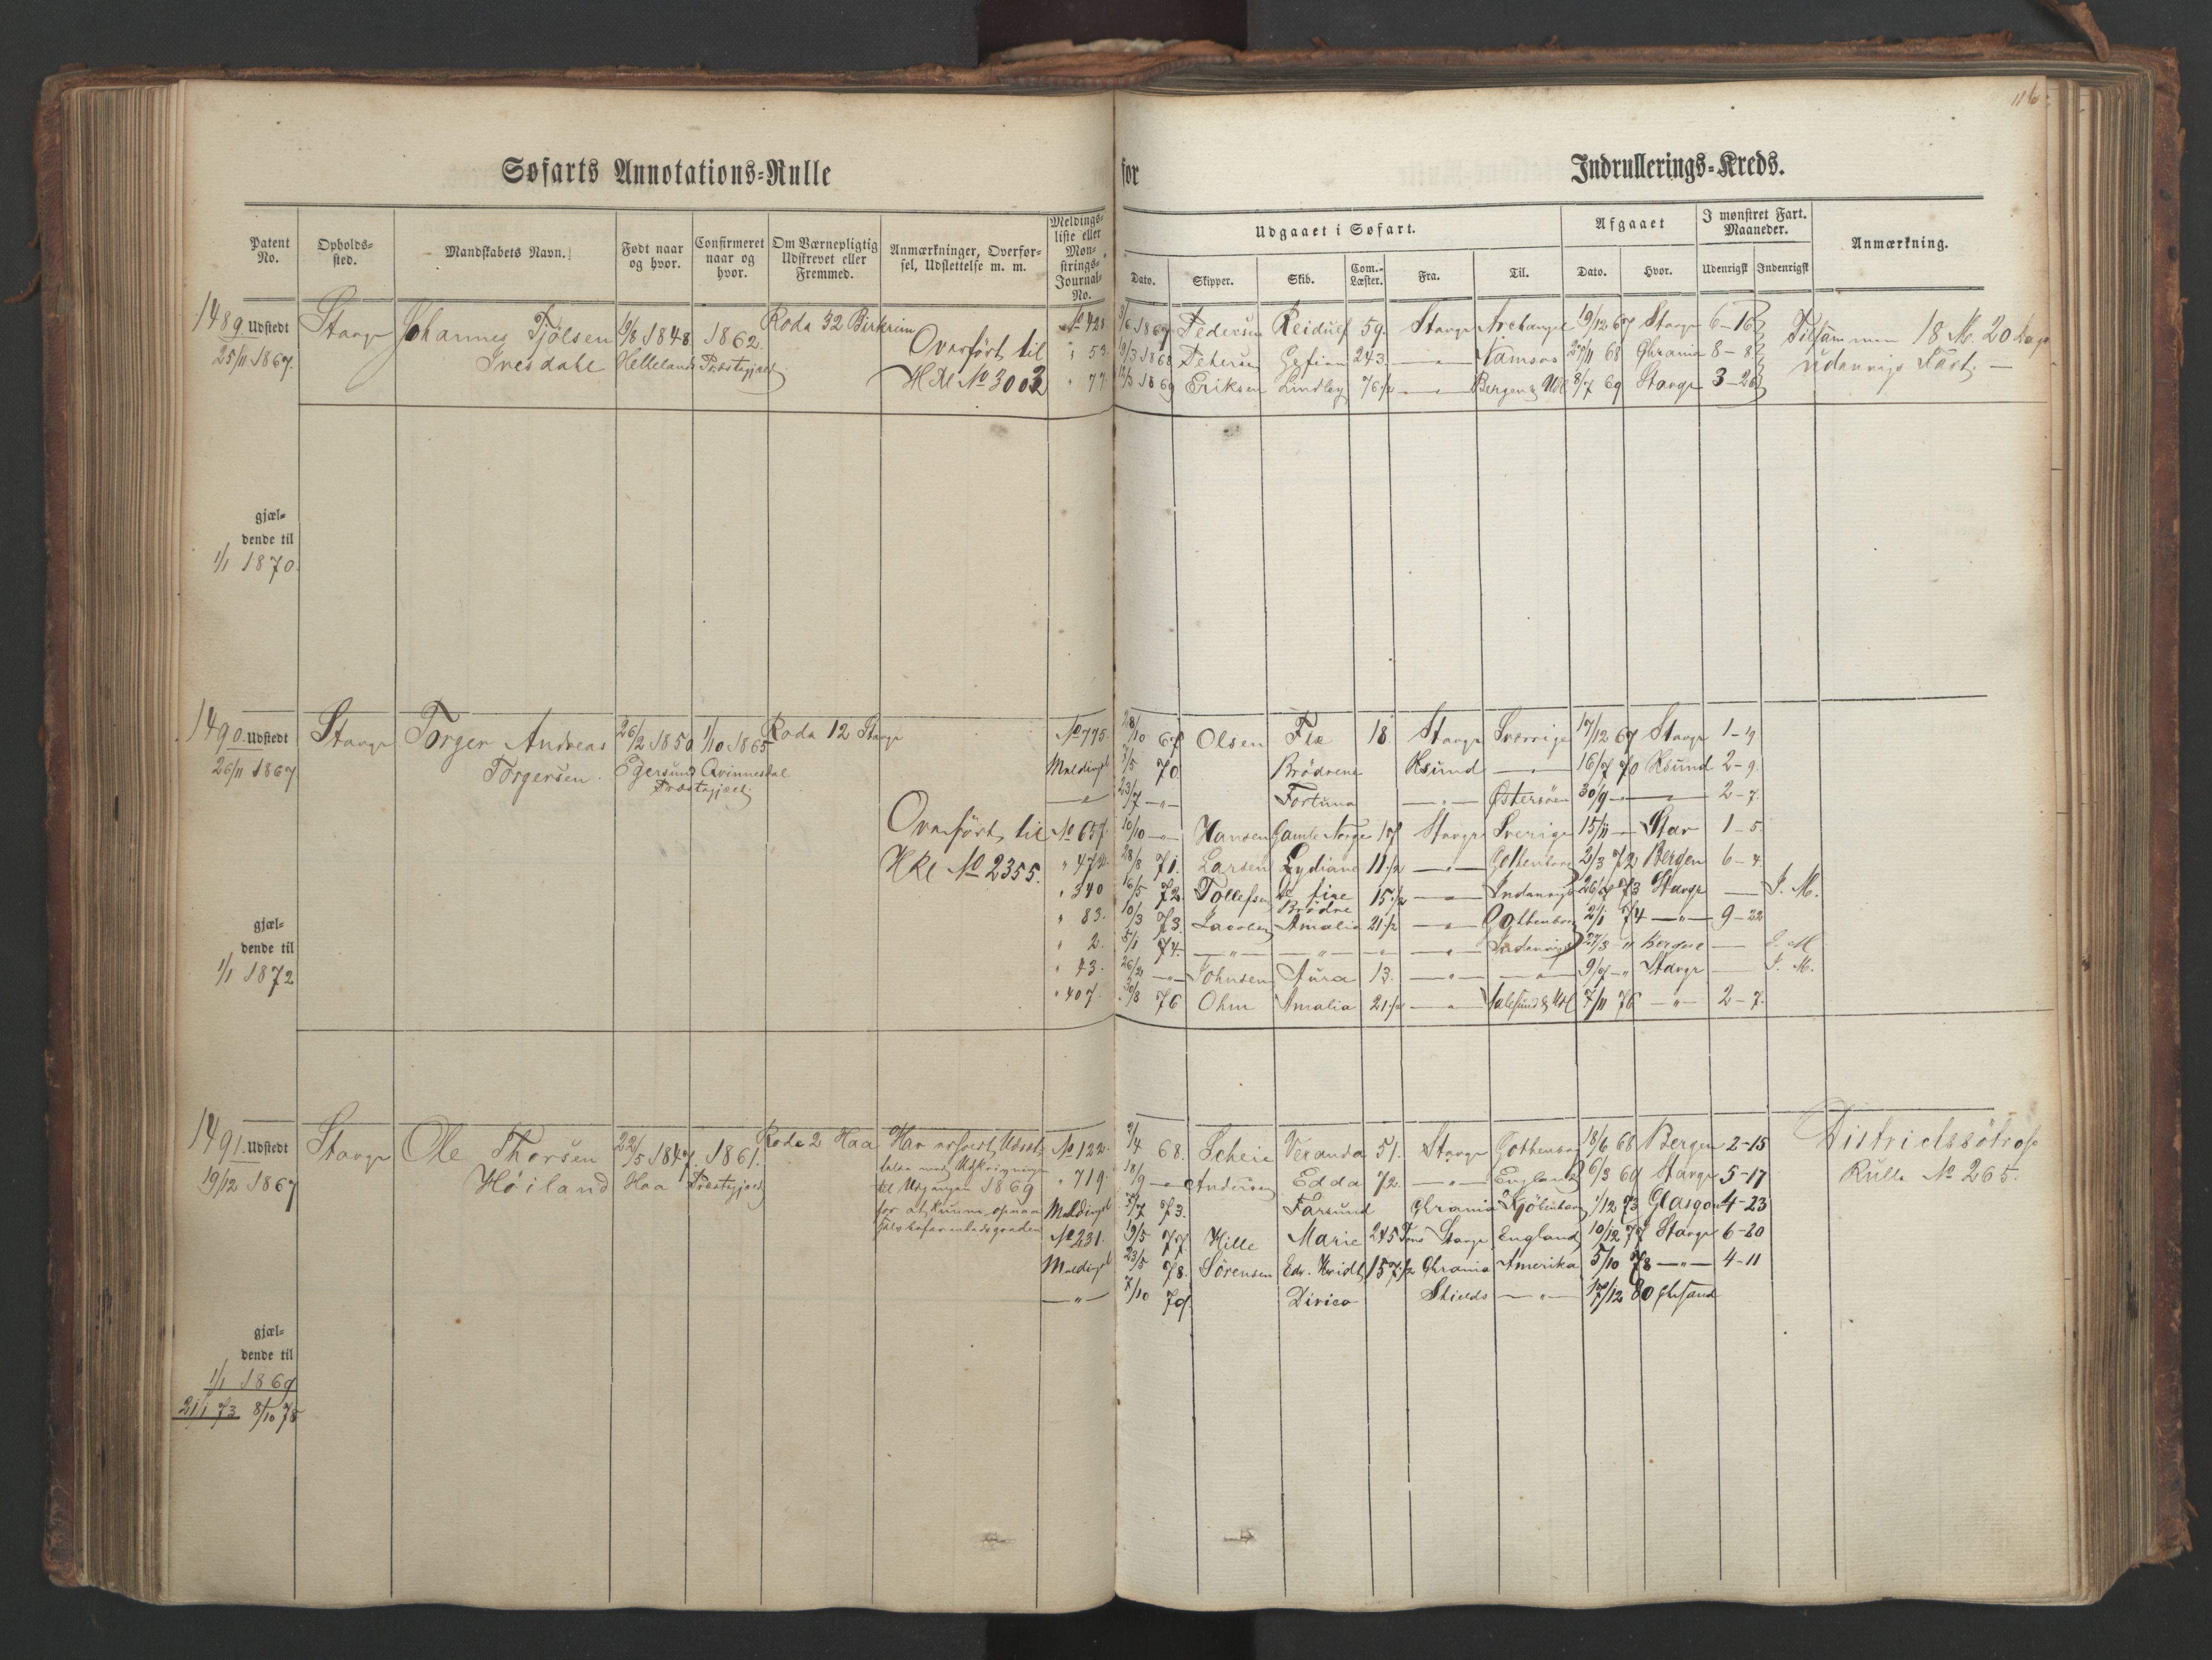 116
Søfarts Annotations-Rulle for Indrullerings-Kreds.
Patent No. | Opholds-sted. | Mandskabets Navn. | Født naar og hvor. | Confirmeret naar og hvor. | Om Værnepligtig Udskrevet eller Fremmed. | Anmærkninger, Overfør-sel, Udslettelse m. m. | Meldings-liste eller Møn-strings-Journal-No. | Udgaaet i Søfart. | Afgaaet | I mønstret Fart. Maaneder. | Anmærkning.
Dato. | Skipper. | Skib. | Com.-Læster. | Fra. | Til. | Dato. | Hvor. | Udenrigsk | Indenrigsk
1489. Udstedt 25/11 1867.
Stavgr
Johannes Tjølsen
Ivesdahl
19/8 1848
Hellelands
1862.
Præstegjæld
Roda 32 Birkrim
Overført til
HRl No 3003
No 428 | 3/6 1867 | Pedersen | Reidulf | 59. | Stavgr | Archangel | 19/12 67 | Stavgr | 6-16
" 53 | 19/3 1868 | Petersen | Gefion | 243. | —"— | Namsos | 27/11 68 | Chrania | 8-8
" 77 | 12/3 1869 | Eriksen | Lindley | 76 1/2 | —"— | Bergen & Udl | 8/7 69 | Stavgr | 3-26
Tilsammen 18 M. 20 Dage
udenrigs Fart. —
gjæl-
dende til
1/1 1870.
1490. Udstedt
26/11 1867
Stavgr
Torger Andreas
Torgersen.
26/2 1850
Egersund
1/10 1865
Qvinnesdal
Præstegjæld.
Roda 12 Stavgr
Overført til
HRl No 2355.
No 775. | 28/10 67 | Olsen | Fix | 18 | Stavgr | Sverrige | 17/12 67 | Stavgr | 1-19
Meldingsl | 7/5 70. | Brødrene | Ksund | —"— | 16/7 70 | Ksund | 2-9.
—"— | 23/7 —"— | Fortuna | —"— | Østersøen | 30/9 —"— | —"— | 2-7.
No 657. | 10/10 —"— | Hansen | Gamle Norge | 17 | Stavgr | Sverige | 15/11 —"— | Stav | 1-5.
" 472. | 28/8 71. | Larsen | Lydiane | 11 1/2 | —"— | Gothenborg | 2/3 72 | Bergen | 6-4
" 340 | 16/5 72. | Tollefsen | De fire Brødre | 15 1/2 | —"— | Indenrigs | 26/7 73 | Stavgr | — | I. M.
" 83. | 10/3 73. | Jacobsen | Amalia | 21 1/2 | —"— | Gothenborg | 2/1 74 | —"— | 9-22
" 2. | 5/1 74. | —"— | —"— | —"— | —"— | Indenrigs | 27/3 " | Bergen | — | I. M
" 43. | 26/2 —"— | Johnsen | Aura | 13. | —"— | —"— | 9/7 —" | Stavgr | — | I. M.
" 407. | 30/8 76 | Ohm | Amalia | 21 1/2 | —"— | Aalesund & Udl | 7/11 76 | —"— | 2-7.
gjæl-
dende til
1/1 1872
1491. Udstedt
19/12 1867
Stavgr
Ole Thorsen
Høiland
22/5 1847.
Haa
1861.
Præstegjæld
Roda 2 Haa
Har erholdt Udsæt-
telse med Udskrivningen
til Udgangen 1869
for at kunne opnaa
No 122. | 9/4 68. | Scheie | Veranda | 51. | Stavgr | Gothenborg | 18/6 68 | Bergen | 2-15
" 719. | 18/9 —"— | Andersen | Edda | 72. | —"— | England | 6/3 69 | Stavgr | 5-17
Meldingsl | 7/7 73. | Farsund | Chrania | Kjøbenhavn | 1/12 73 | Glasgow | 4-23
No 231. | 19/5 77 | Hille | Marie | 245 Tons | Stavgr | England | 10/12 77 | Stavgr | 6-20
Meldingsl | 23/5 78. | Sørensen | Edv. Hvidt | 157 1/2 | Chrania | Amerika | 5/10 78 | —"— | 4-11
—"— | 7/10 79. | Dirico | Shields | —"— | 17/12 80 | Chrsand
Districtssøtrøfs
Rulle No 265.
gjæl-
dende til
1/1 1869
21/1 73 8/10 78